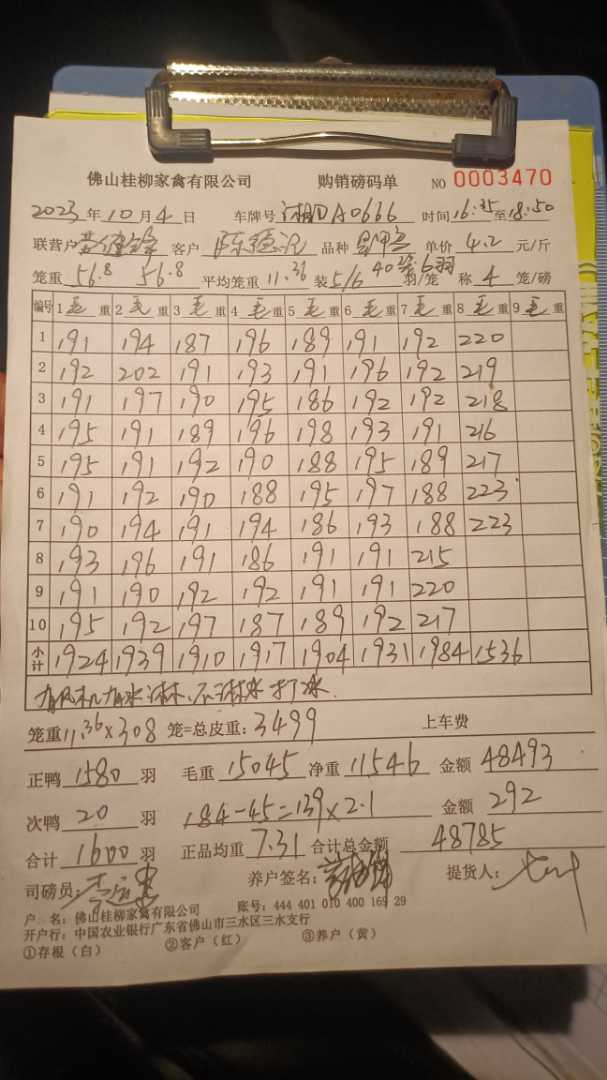 佛山桂柳家禽有限公司 购销磅码单 NO 0003470
2023 年 10 月 4 日 车牌号 湘DA0666 时间 16:35 至 18:50
联营户 客户 品种 单价 4.2 元/斤
笼重 56.8 56.8 平均笼重 11.36 装 5/6 40笼6羽 羽/笼 称 4 笼/磅
编号 1 毛 重 2 毛 重 3 毛 重 4 毛 重 5 毛 重 6 毛 重 7 毛 重 8 毛 重 9 毛 重
1 191 194 187 196 189 191 192 220
2 192 202 191 193 191 196 192 219
3 191 197 190 195 186 192 192 218
4 195 191 189 196 198 193 191 216
5 195 191 192 190 188 195 189 217
6 191 192 190 188 195 197 188 223
7 190 194 191 194 186 193 188 223
8 193 196 191 186 191 191 215
9 191 190 192 192 191 191 220
10 195 192 197 187 189 192 217
小计 1924 1939 1910 1917 1904 1931 1984 1536
有风机有水淋.不淋水打冰.
笼重 11.36×308 笼=总皮重: 3499 上车费
正鸭 1580 羽 毛重 15045 净重 11546 金额 48493
次鸭 20 羽 184-45=139×2.1 金额 292
合计 1600 羽 正品均重 7.31 合计总金额 48785
司磅员: 养户签名: 提货人:
户 名: 佛山桂柳家禽有限公司 账号: 444 401 010 400 169 29
开户行: 中国农业银行广东省佛山市三水区三水支行
①存根(白) ②客户(红) ③养户(黄)